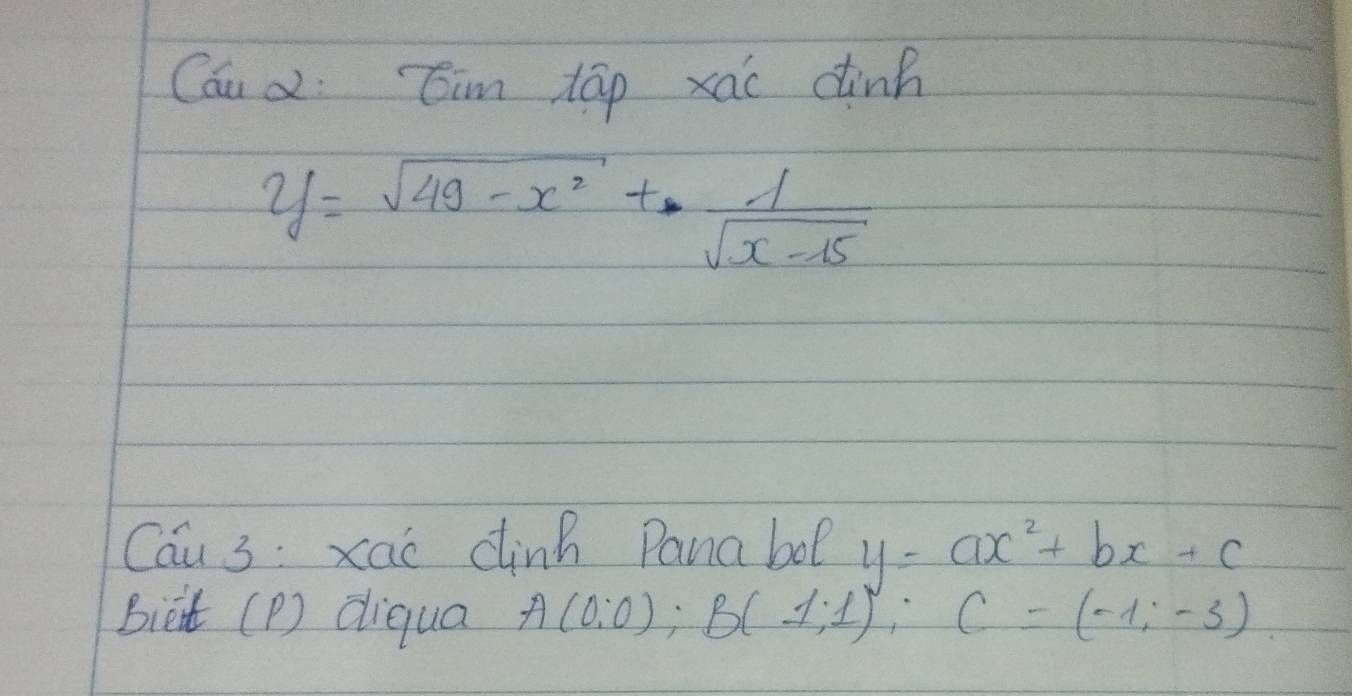 Câu 2: Tìm tập xác định
y = √(49 - x²) + 1/√(x - 15)
Câu 3: xác định Panabol y = ax² + bx + c
Biết (P) điqua A(0;0); B(1;1); C = (-1; -3).